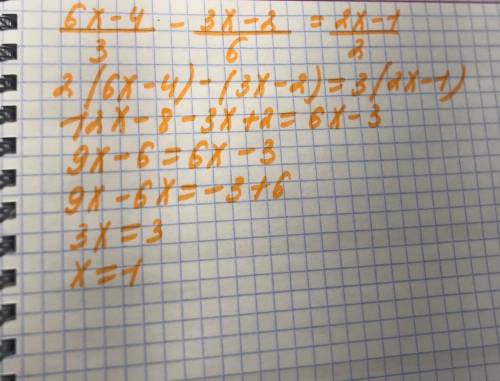 (6x-4)/3 - (3x-2)/6 = (2x-1)/2
2(6x-4)-(3x-2)=3(2x-1)
12x-8-3x+2=6x-3
9x-6=6x-3
9x-6x=-3+6
3x=3
x=1